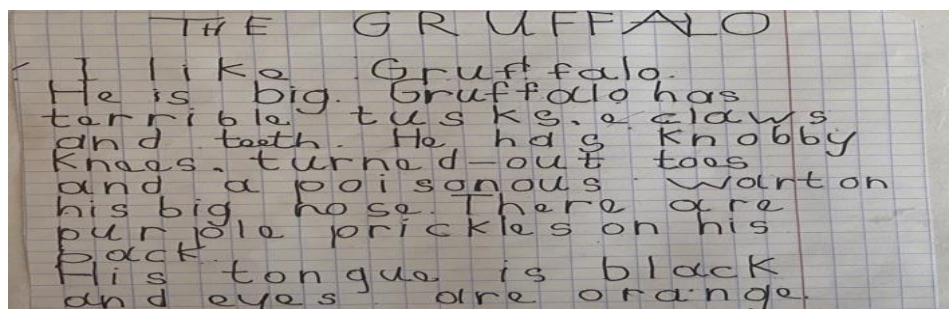 THE GRUFFALO
I like Gruffalo.
He is big. Gruffalo has
terrible tusks. claws
and teeth. He has knobby
knees. turned-out toes
and a poisonous wart on
his big nose. There are
purple prickles on his
back.
His tongue is black
and eyes are orange.